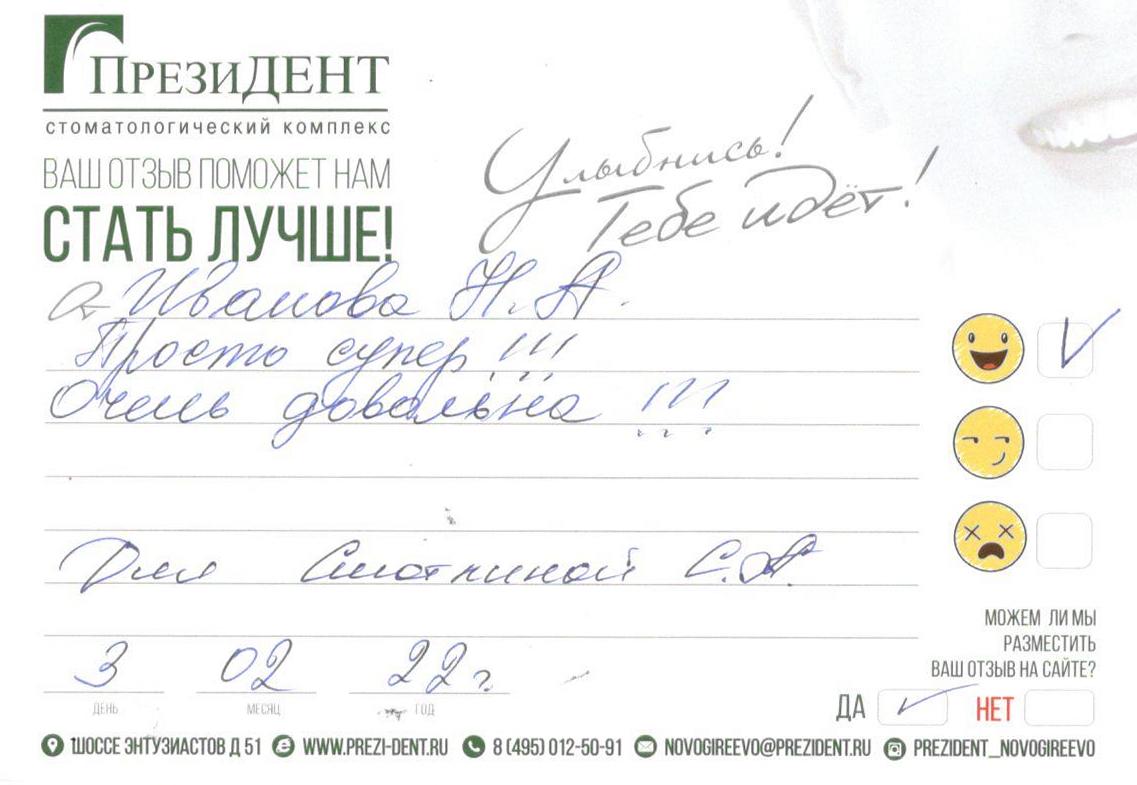 ПрезиДЕНТ
стоматологический комплекс
ВАШ ОТЗЫВ ПОМОЖЕТ НАМ
СТАТЬ ЛУЧШЕ!
Улыбнись!
Тебе идёт!
от Иванова Н.А.
Просто супер!!!
Очень довольна!!!
Для Смоткиной С.А.
3 02 22 г.
ДЕНЬ МЕСЯЦ ГОД
МОЖЕМ ЛИ МЫ
РАЗМЕСТИТЬ
ВАШ ОТЗЫВ НА САЙТЕ?
ДА НЕТ
ШОССЕ ЭНТУЗИАСТОВ Д 51 WWW.PREZI-DENT.RU 8 (495) 012-50-91 NOVOGIREEVO@PREZIDENT.RU PREZIDENT_NOVOGIREEVO